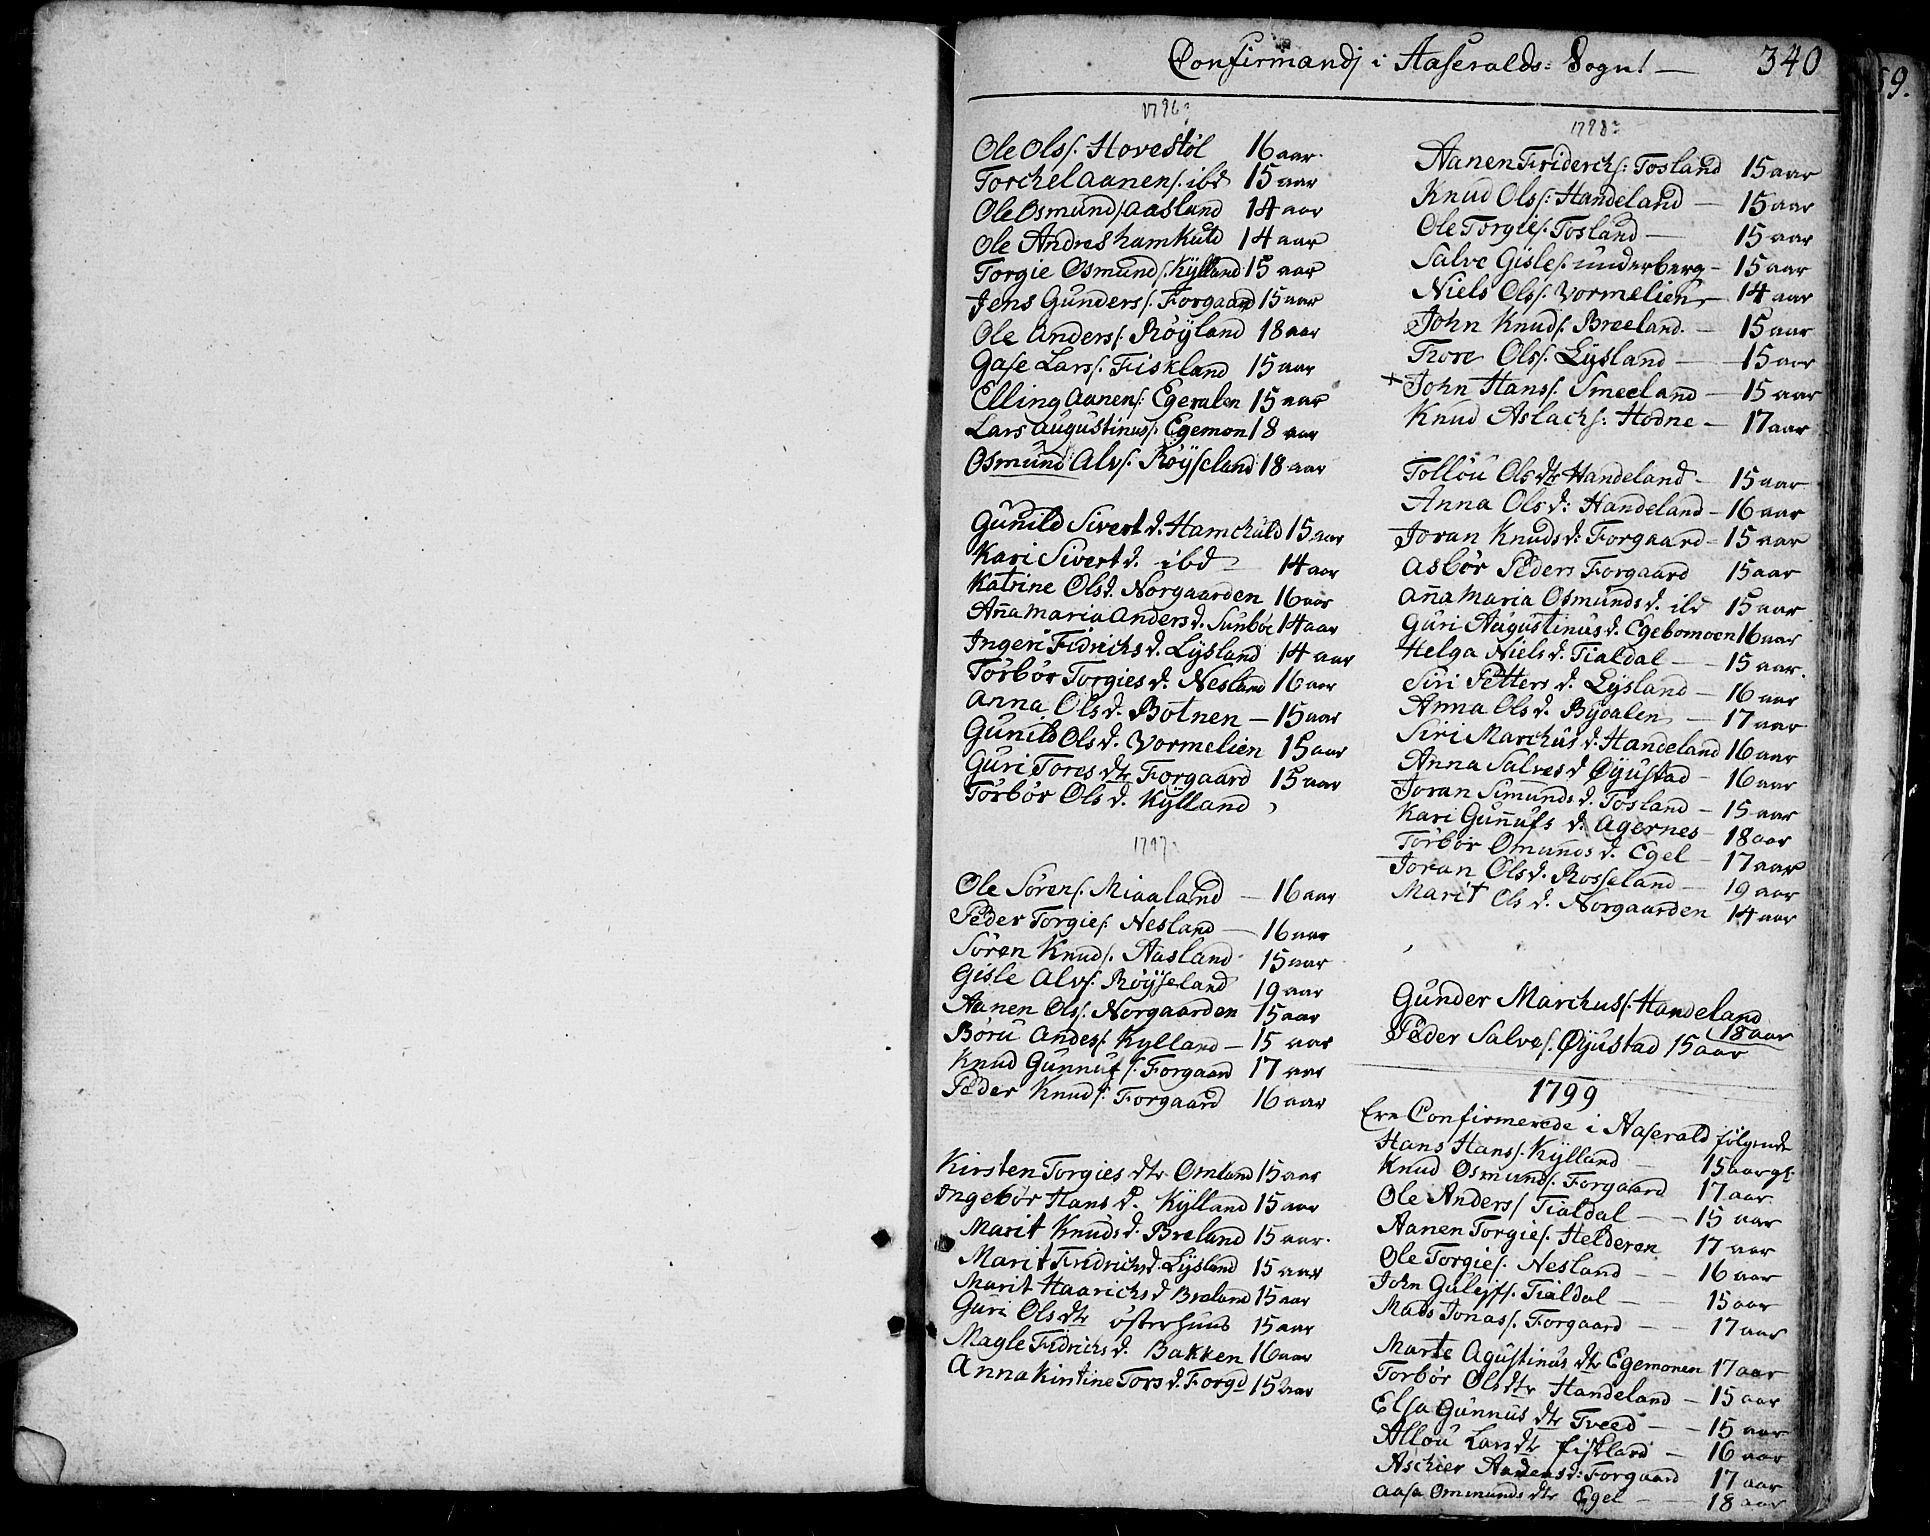 Confirmandj i Aaseralds: Sogn! — 340
59.
1796?
Ole Ols/: Hovestøl 16 aar.
Torchel Aanens/. ibd 15 aar
Ole Osmunds/ Aasland 14 aar
Ole Andres hamkuld 14 aar
Torgie Osmunds/. Kÿlland 15 aar
Jens Gunders/: Forgaard 15 aar
Ole Anders/: Røÿland 18 aar
Gase Lars/: Fiskland 15 aar
Elling Aanens/: Egeralen 15 aar
Lars Augustinus/: Egemon 18 aar
Osmund Alvs/: Røÿseland 18 aar
Gunild Sivert d: Hamchuld 15 aar
Kari Sivert d. ibd — 14 aar
Katrine Ols d. Norgaarden 16 aar
Aña Maria Anders d. Sunbøe 14 aar
Ingeri Fidrichs d. Lÿsland 14 aar
Torbør Torgies d. Nesland 16 aar
Anna Ols d. Botnen — 15 aar
Gunild Ols d. Vormelien 15 aar
Guri Tores dtr Forgaard 15 aar
Torbør Ols d. Kÿlland
1797?
Ole Sørens/. Miaaland — 16 aar
Peder Torgies/: Nesland — 16 aar
Søren Knuds/. Aasland 15 aar
Gisle Alvs/: Røÿseland 19 aar
Aanen Ols/. Norgaarden 15 aar
Børu Andes/: Kylland — 15 aar
Knud Gunnufs/: Forgaard 17 aar
Peder Knuds/: Forgaard 16 aar
Kirsten Torgies dtr Omland 15 aar
Ingebør Hans d. Kÿlland 15 aar
Marit Knuds d. Breland 15 aar.
Marit Fridrichs d. Lÿsland 15 aar
Marit Haarichs d Breland 15 aar
Guri Ols dtr østerhuus 15 aar
Magle Fidrichs d. Bakken 16 aar
Anna Kirstine Tors d. Forgd 15 aar
1798?
Aanen Friderchs/: Tosland 15 aar
Knud Ols/: Handeland — 15 aar
Ole Torgies/. Tosland — 15 aar
Salve Gisles/. underberg — 15 aar
Niels Ols/. Vormelien — 14 aar
John Knuds/. Breeland. — 15 aar
Thore Ols/. Lÿsland — 15 aar
+ John Hans/. Smeeland — 15 aar
Knud Aslachs/: Hodne — 17 aar
Tolløu Ols dtr Handeland — 15 aar
Anna Ols d: Handeland — 16 aar
Joran Knuds d: Forgaard — 15 aar
Asbør Peders Forgaard 15 aar
Aña Maria Osmunds d. ibd 15 aar
Guri Augustinus d. Egebomoen 16 aar
Helga Niels d. Tialdal — 15 aar.
Siri Petters d. Lÿsland — 16 aar
Anna Ols d. Bÿdalen — 17 aar
Siri Marchus d. Handeland 16 aar
Anna Salves d Øÿustad — 16 aar
Joran Simunds d. Tosland — 15 aar
Kari Guñufs d. Agernes — 18 aar
Torbør Omunds d. Egel — 17 aar
Joran Ols d. Rosseland — 19 aar
Marit Ols d. Norgaarden 14 aar
Gunder Marchus/. Handeland
18 aar
Peder Salves/. Øÿustad 15 aar
1799
Ere Confirmerede i Aaserald følgende
Hans Hans/. Kÿlland — 15 aar gl.
Knud Osmunds/. Forgaard 17 aar
Ole Anders/ Tialdal — 15 aar
Aanen Torgies/. Helderen 17 aar
Ole Torgies/. Nesland — 16 aar
John Guleifs/. Tialdal — 15 aar
Mads Jonas/. Forgaard — 17 aar
Marte Agustinus dtr Egemonen 17 aar
Torbør Ols dtr Handeland — 15 aar
Elsa Gunnus dtr Tveed — 15 aar
Alløu Lars dtr fiskland — 16 aar
Aschier Aanens d: Forgaard 17 aar
Aasa Ommunds dtr Egel — 18 aar